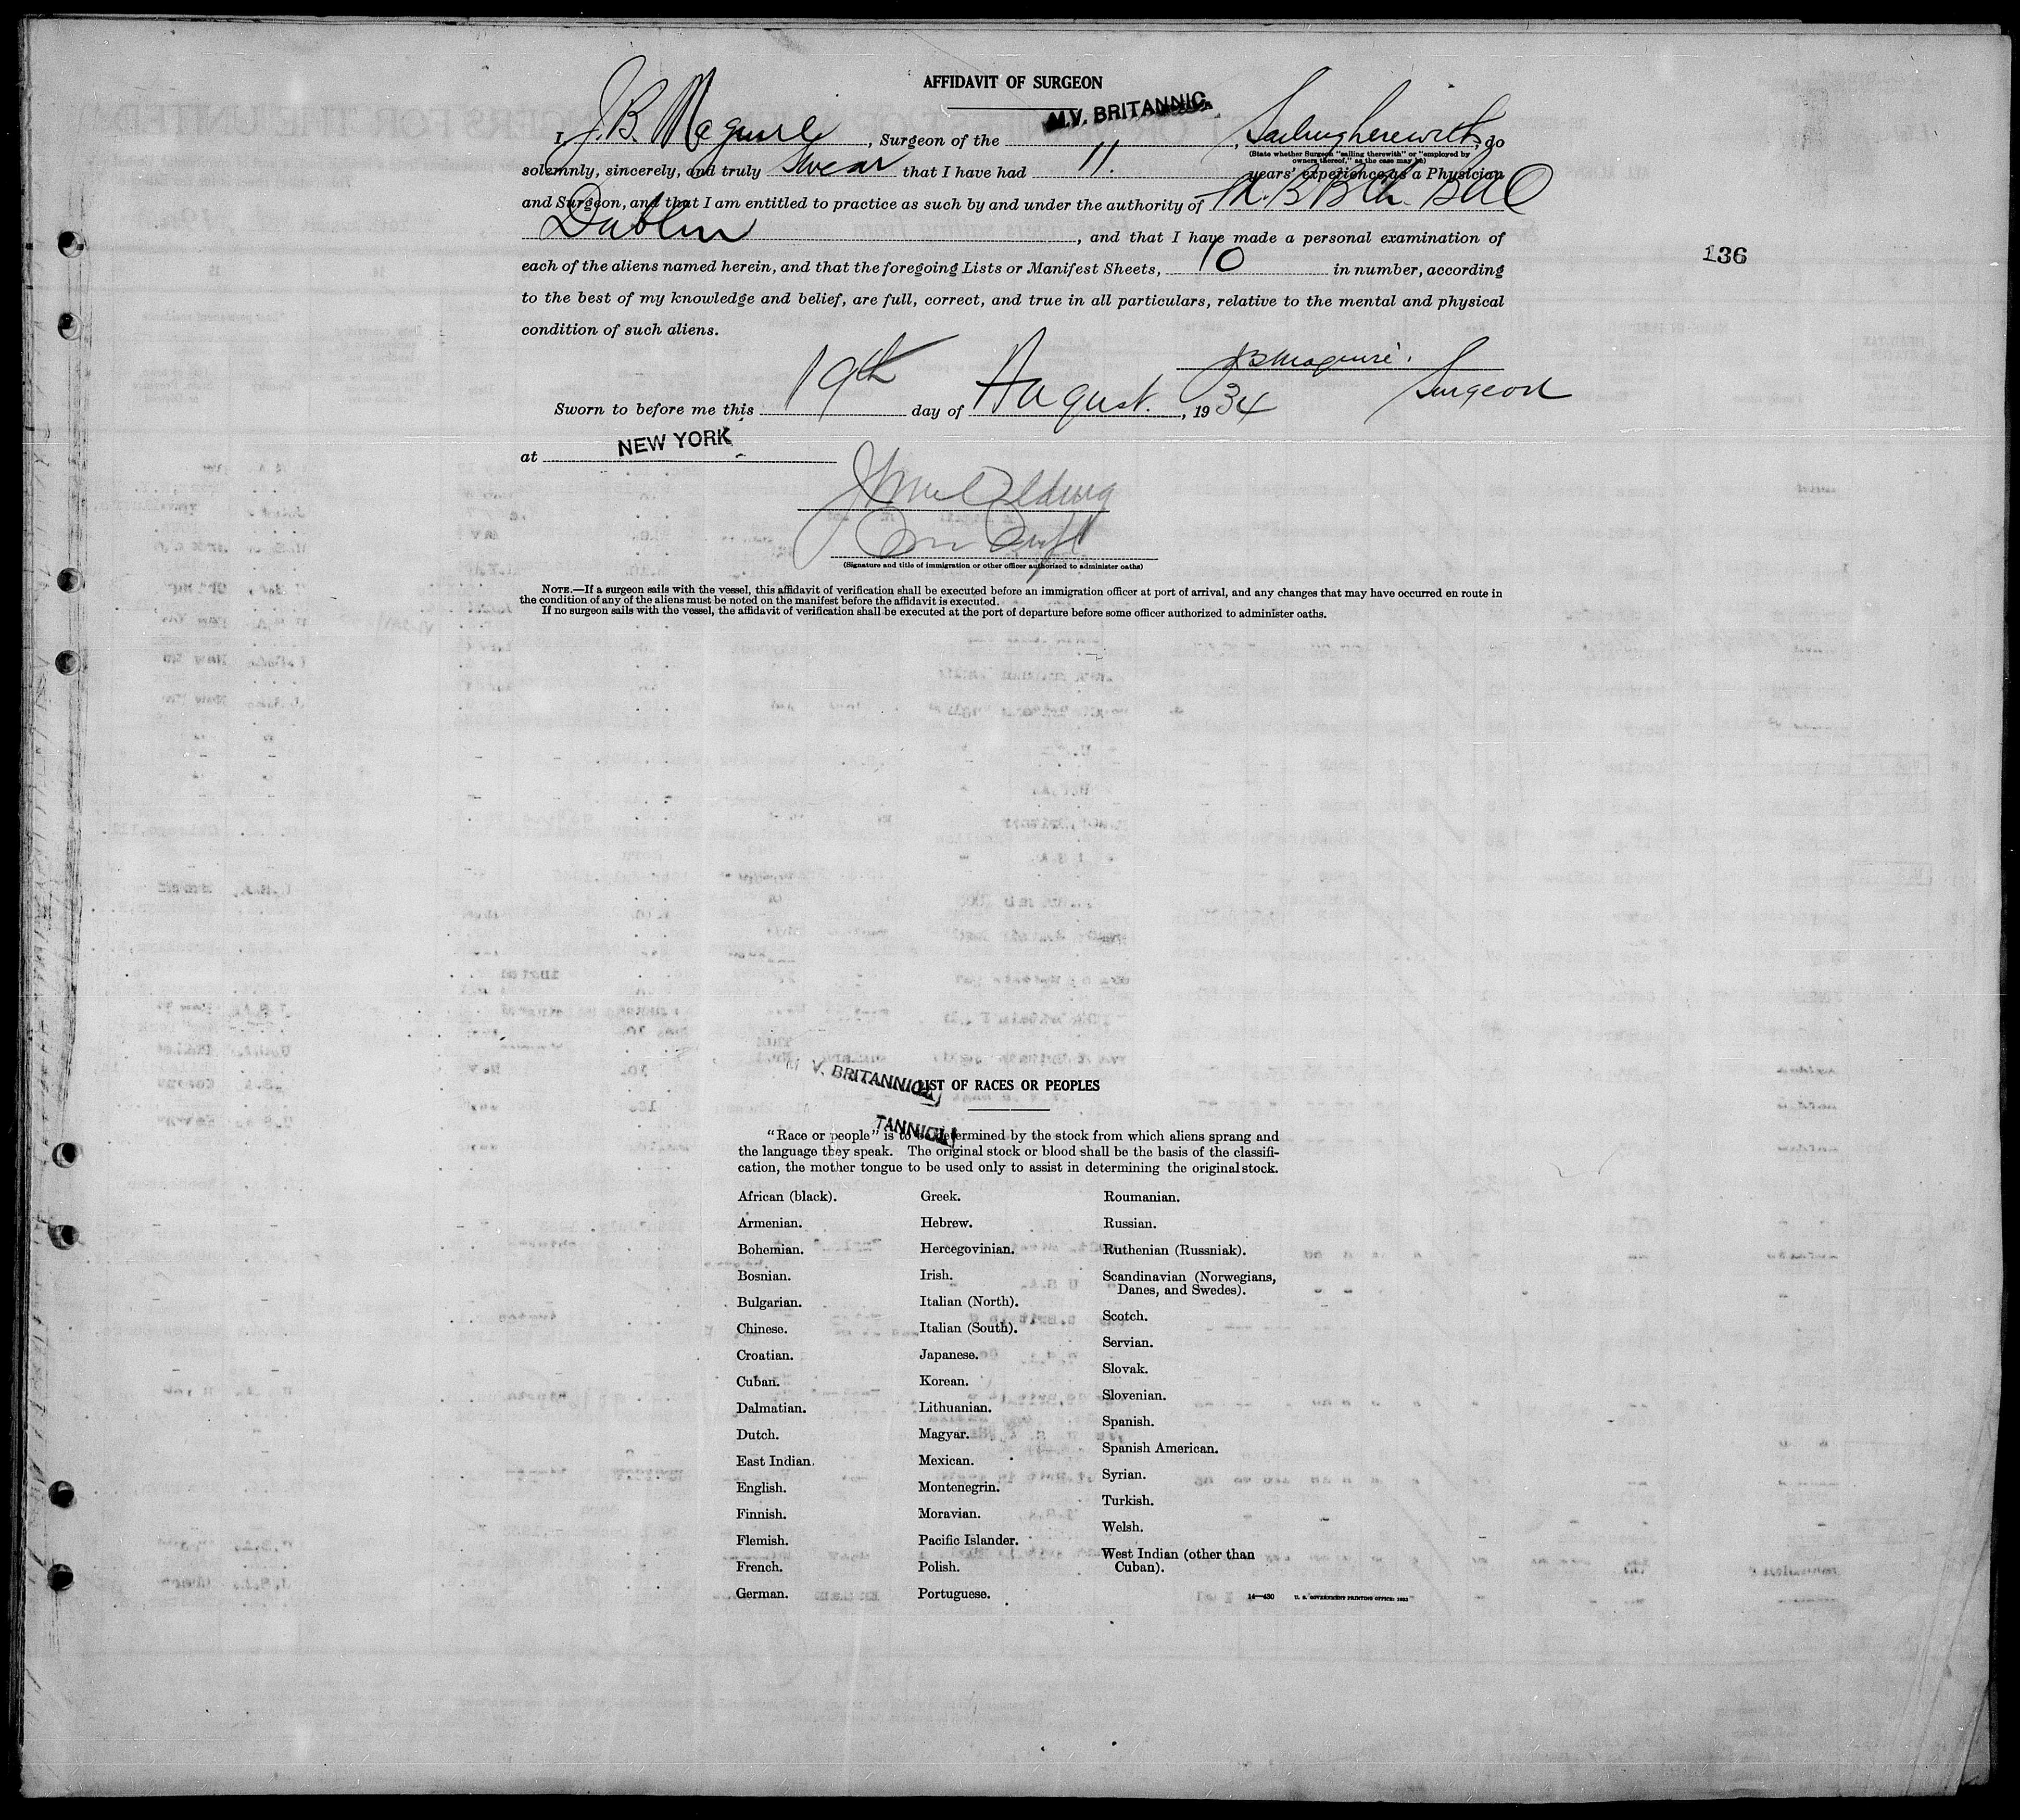 AFFIDAVIT OF SURGEON
I, J. B. Maguire, Surgeon of the M.V. BRITANNIC, Sailing herewith, do
(State whether Surgeon "sailing therewith" or "employed by
owners thereof," as the case may be)
solemnly, sincerely, and truly swear that I have had 11. years' experience as a Physician
and Surgeon, and that I am entitled to practice as such by and under the authority of M.B. B.Ch. BAO
Dublin, and that I have made a personal examination of
each of the aliens named herein, and that the foregoing Lists or Manifest Sheets, 10 in number, according
to the best of my knowledge and belief, are full, correct, and true in all particulars, relative to the mental and physical
condition of such aliens.
136
JBMaguire.
Surgeon
Sworn to before me this 19th day of August., 1934
at NEW YORK
(Signature and title of immigration or other officer authorized to administer oaths)
NOTE.—If a surgeon sails with the vessel, this affidavit of verification shall be executed before an immigration officer at port of arrival, and any changes that may have occurred en route in
the condition of any of the aliens must be noted on the manifest before the affidavit is executed.
If no surgeon sails with the vessel, the affidavit of verification shall be executed at the port of departure before some officer authorized to administer oaths.
M V. BRITANNIC
LIST OF RACES OR PEOPLES
TANNIC
"Race or people" is to be determined by the stock from which aliens sprang and
the language they speak. The original stock or blood shall be the basis of the classifi-
cation, the mother tongue to be used only to assist in determining the original stock.
African (black).
Armenian.
Bohemian.
Bosnian.
Bulgarian.
Chinese.
Croatian.
Cuban.
Dalmatian.
Dutch.
East Indian.
English.
Finnish.
Flemish.
French.
German.
Greek.
Hebrew.
Hercegovinian.
Irish.
Italian (North).
Italian (South).
Japanese.
Korean.
Lithuanian.
Magyar.
Mexican.
Montenegrin.
Moravian.
Pacific Islander.
Polish.
Portuguese.
Roumanian.
Russian.
Ruthenian (Russniak).
Scandinavian (Norwegians,
Danes, and Swedes).
Scotch.
Servian.
Slovak.
Slovenian.
Spanish.
Spanish American.
Syrian.
Turkish.
Welsh.
West Indian (other than
Cuban).
14—430 U. S. GOVERNMENT PRINTING OFFICE: